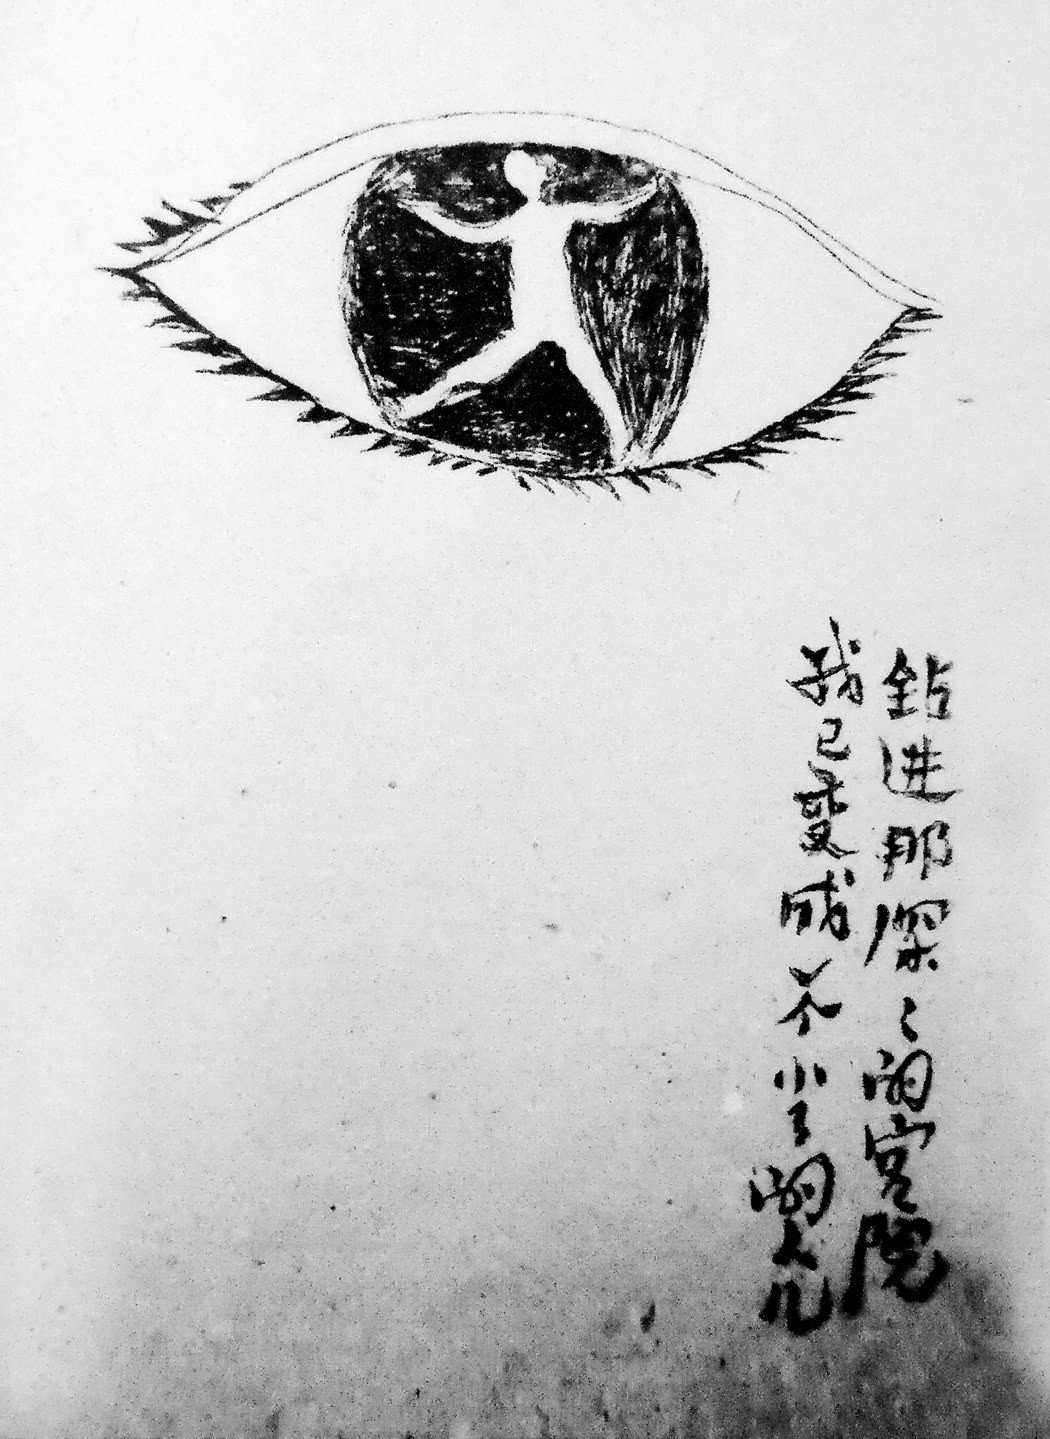 钻进那深々的宫院
我已变成个小々的人儿